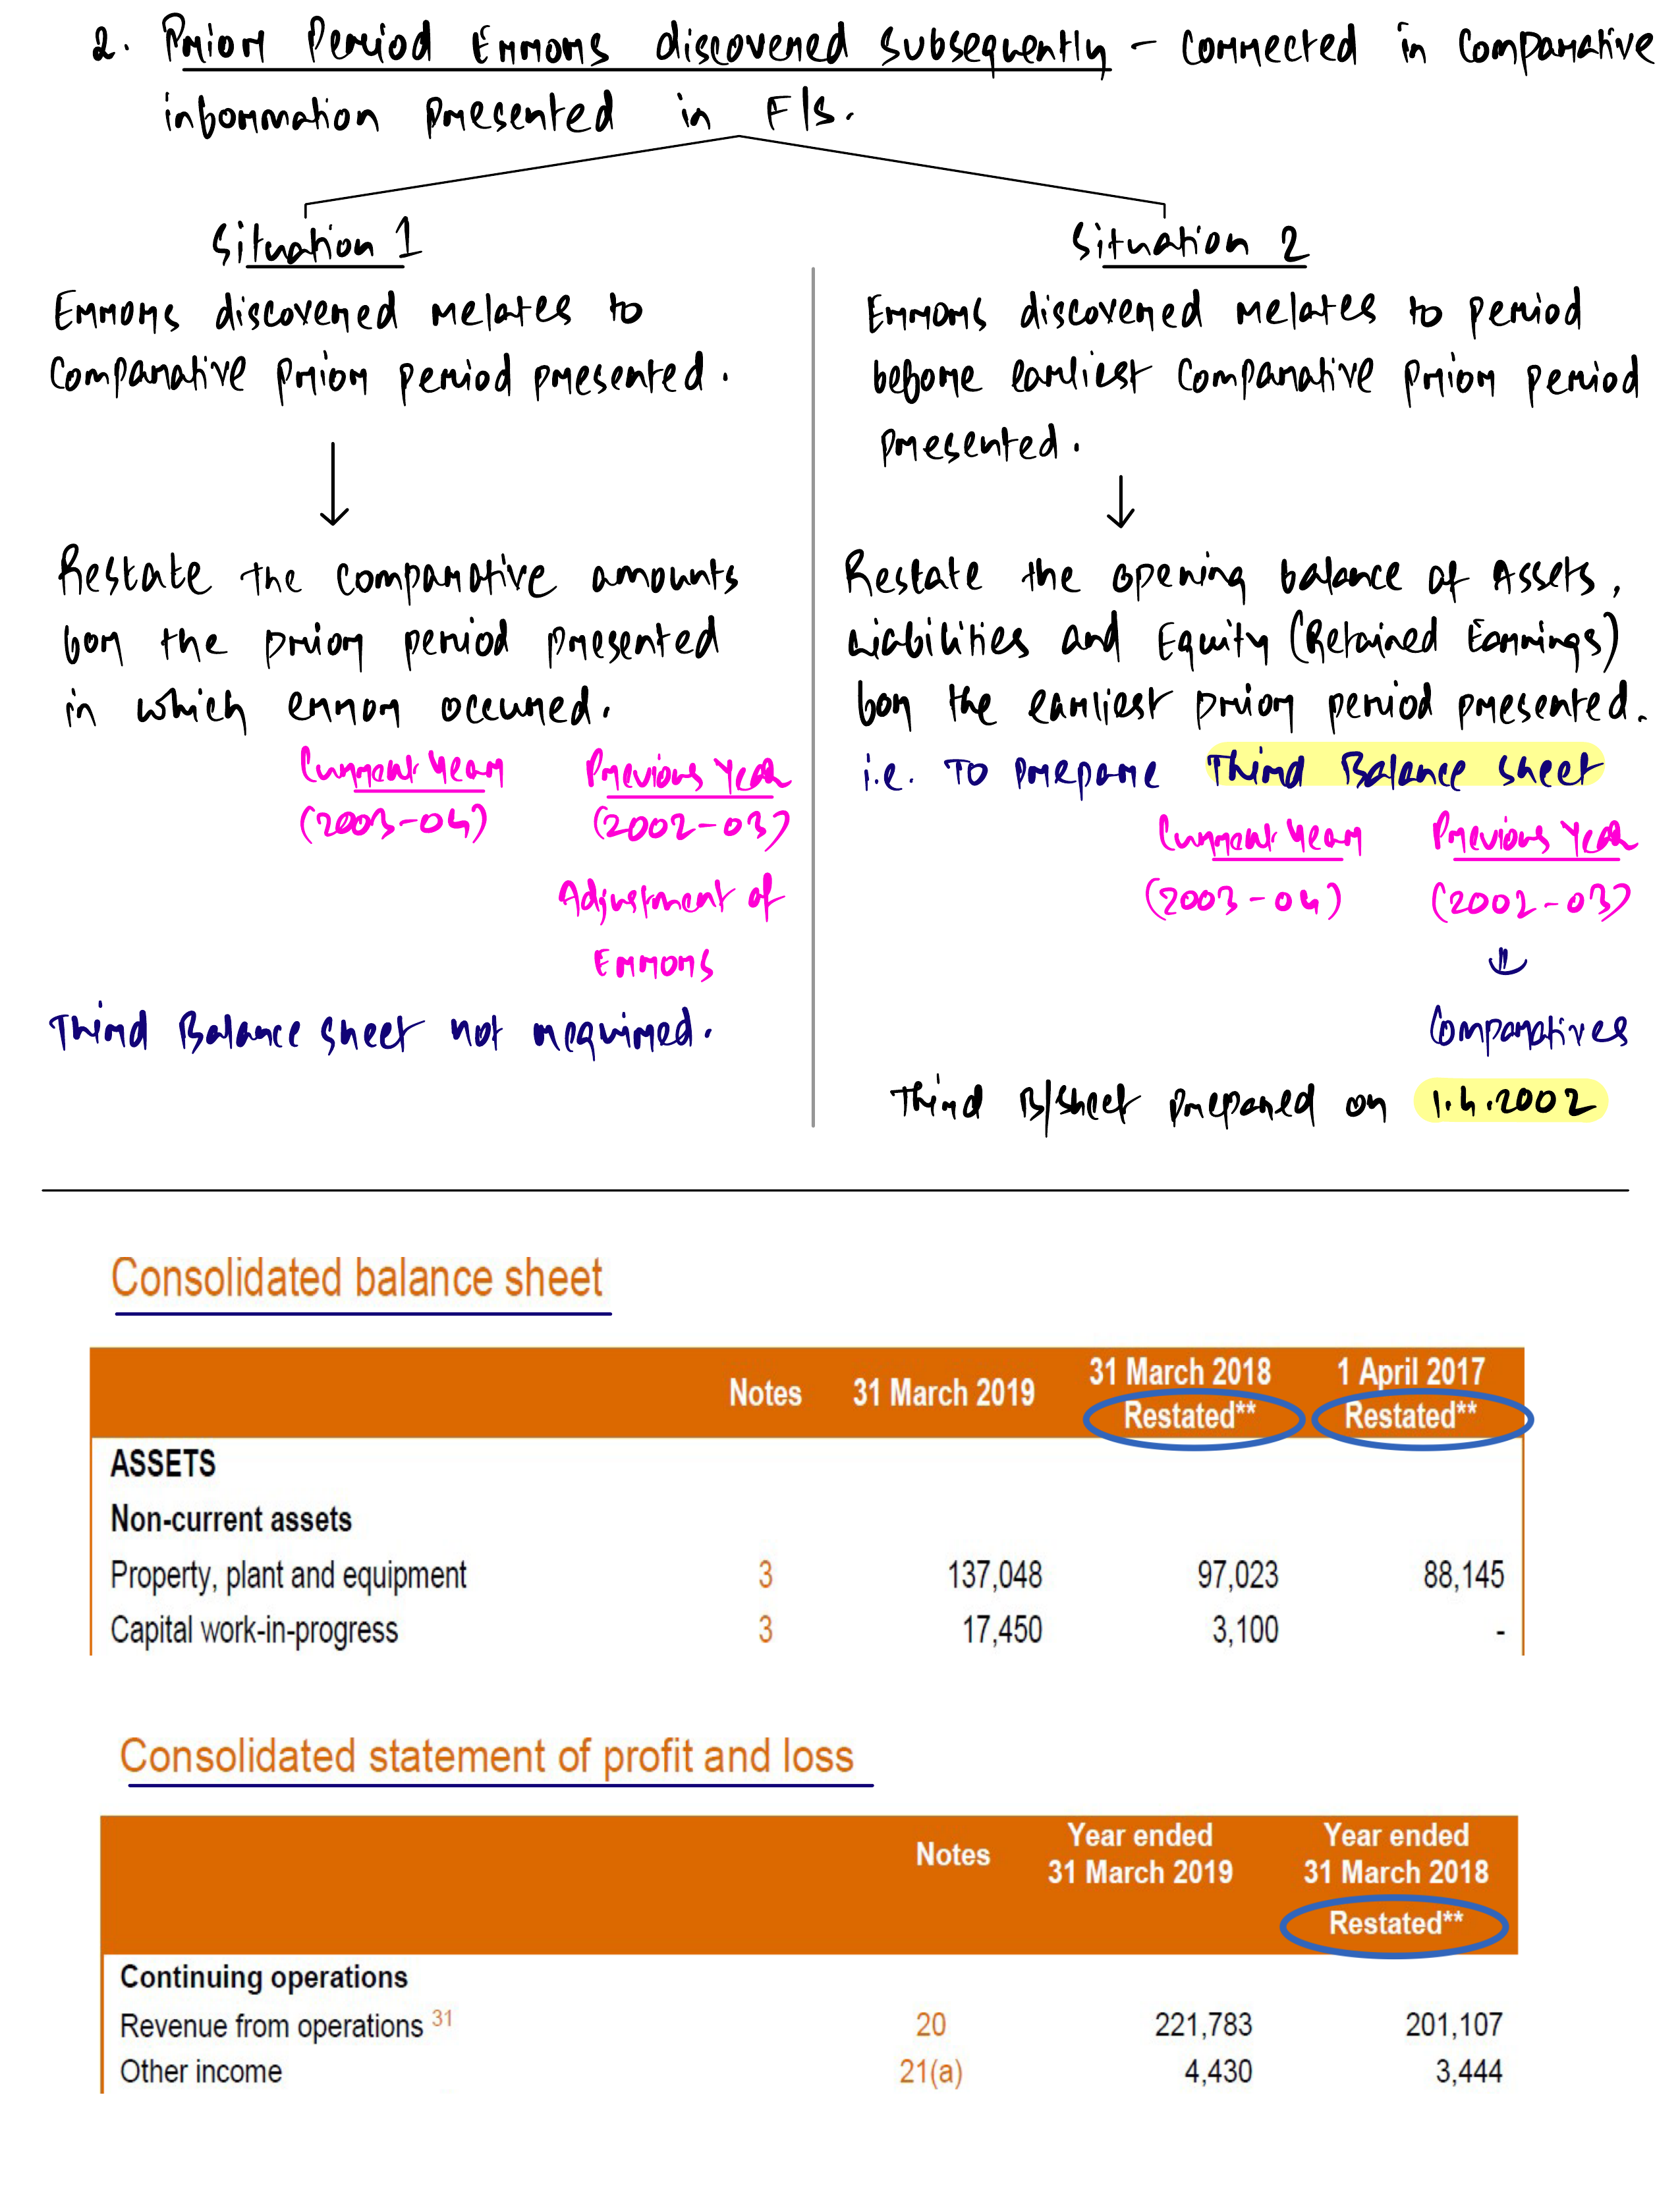 2. Prior Period Errors discovered subsequently - corrected in comparative
information presented in F/s.
Situation 1
Errors discovered relates to
comparative prior period presented.
Restate the comparative amounts
for the prior period presented
in which error occured.
Current Year Previous Year
(2003-04) (2002-03)
Adjustment of
Errors
Third Balance sheet not required.
Situation 2
Errors discovered relates to period
before earliest comparative prior period
presented.
Restate the opening balance of Assets,
Liabilities and Equity (Retained Earnings)
for the earliest prior period presented.
i.e. To prepare Third Balance sheet
Current Year Previous Year
(2003-04) (2002-03)
Comparatives
Third B/sheet prepared on 1.4.2002
Consolidated balance sheet
Notes 31 March 2019 31 March 2018 Restated** 1 April 2017 Restated**
ASSETS
Non-current assets
Property, plant and equipment 3 137,048 97,023 88,145
Capital work-in-progress 3 17,450 3,100 -
Consolidated statement of profit and loss
Notes Year ended 31 March 2019 Year ended 31 March 2018 Restated**
Continuing operations
Revenue from operations 31 20 221,783 201,107
Other income 21(a) 4,430 3,444